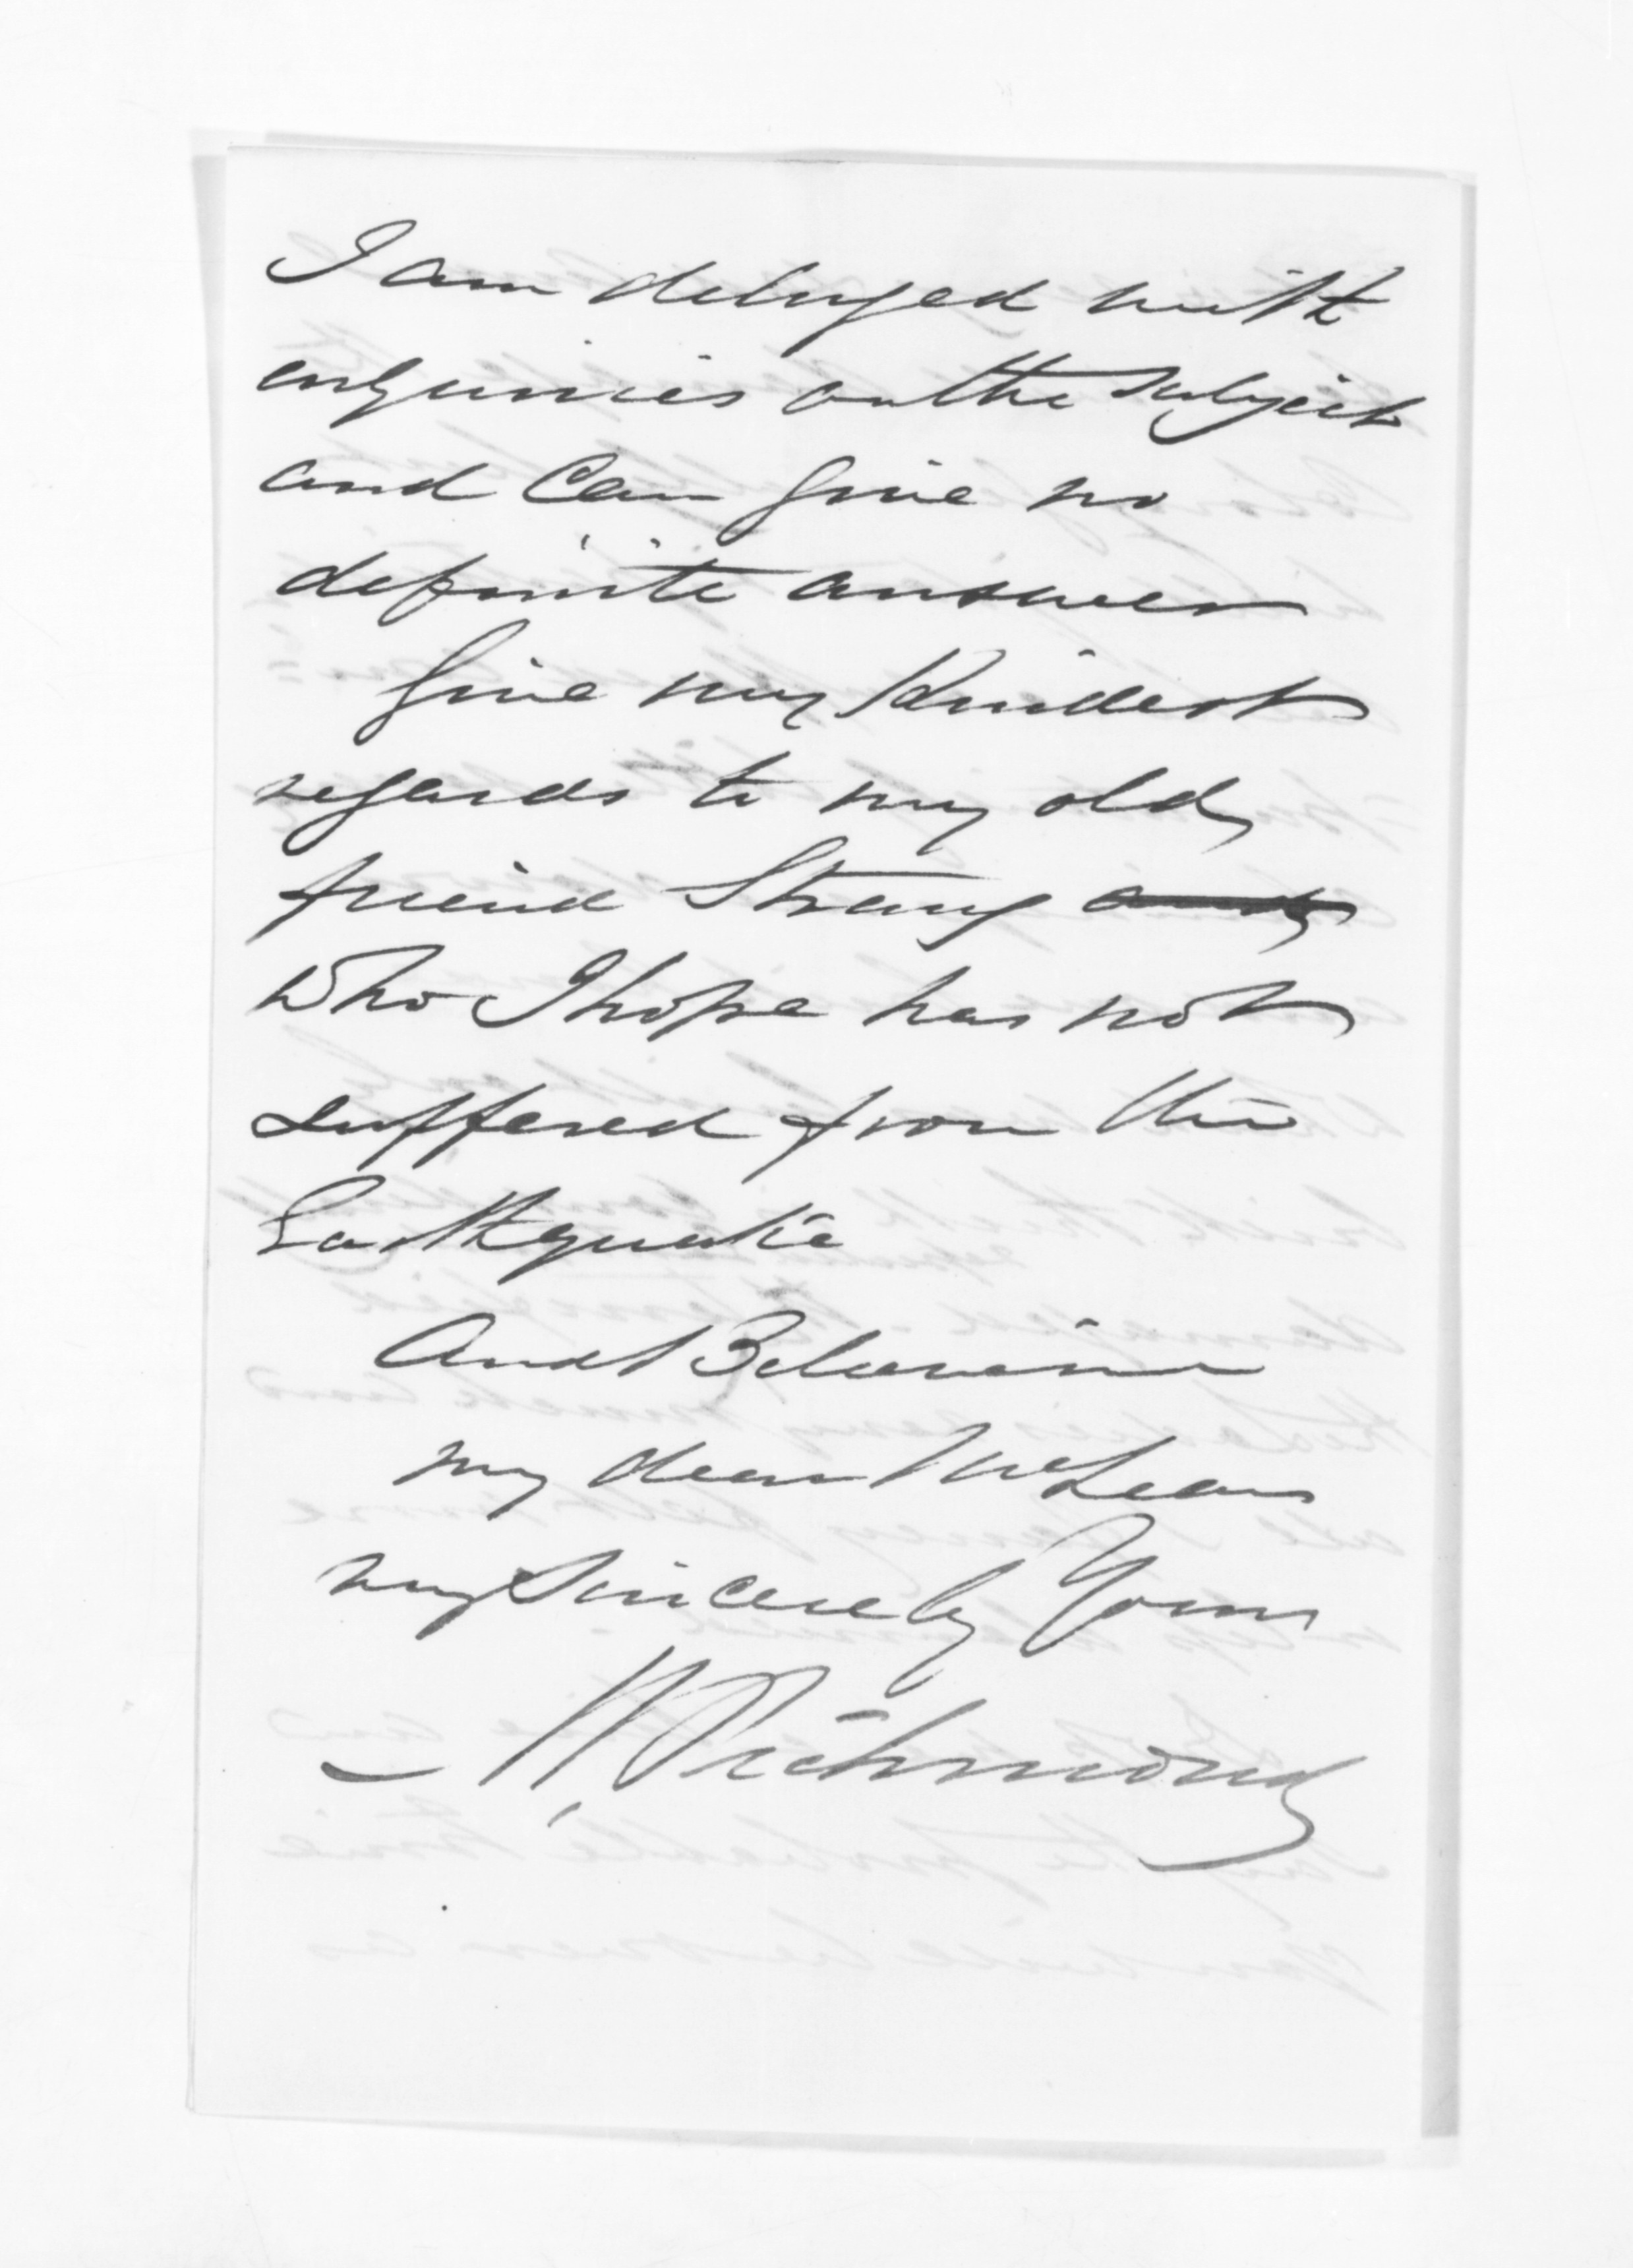 I am deluged with
enquiries on the subject
and can give no
definite answer
Give my kindest
regards to my old
friend Strang and
who I hope has not
suffered from the
Earthquake
And Believe me
my dear McLean
very sincerely Yours
Richmond